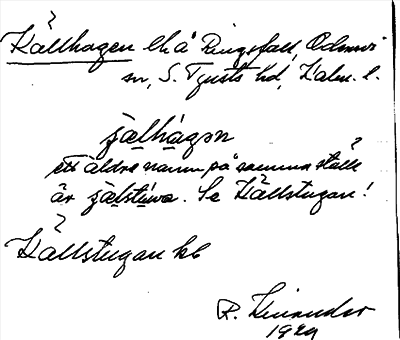 Källhagen lh å Ringsfall, Odensvi
sn, S. Tjusts hd, Kalm. l.
ʃælhágən
ett äldre namn på samma ställe
är ʃælstúwa. Se Källstugan!
Källstugan hb
R.
1929